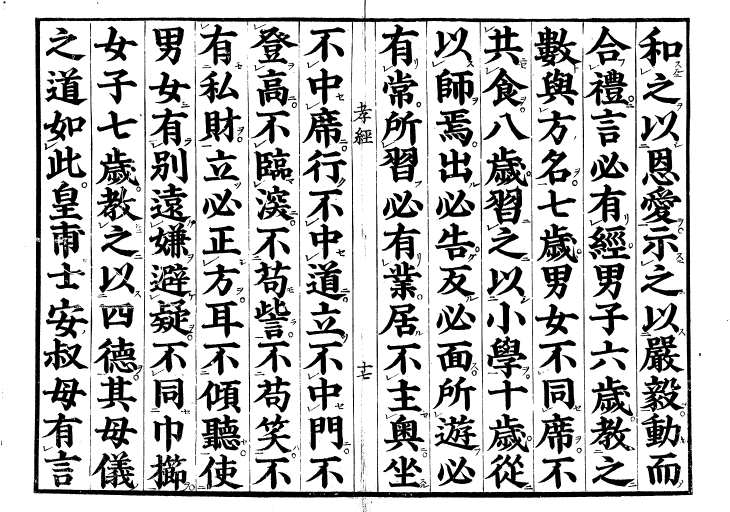 和之以恩愛示之以嚴毅動而
合禮言必有經男子六歲教之
數與方名七歲男女不同席不
共食八歲習之以小學十歲從
以師焉出必告反必面所遊必
有常所習必有業居不主奧坐
孝經
十七
不中席行不中道立不中門不
登高不臨深不苟訾不苟笑不
有私財立必正方耳不傾聽使
男女有別遠嫌避疑不同巾櫛
女子七歲教之以四德其母儀
之道如此皇甫士安叔母有言